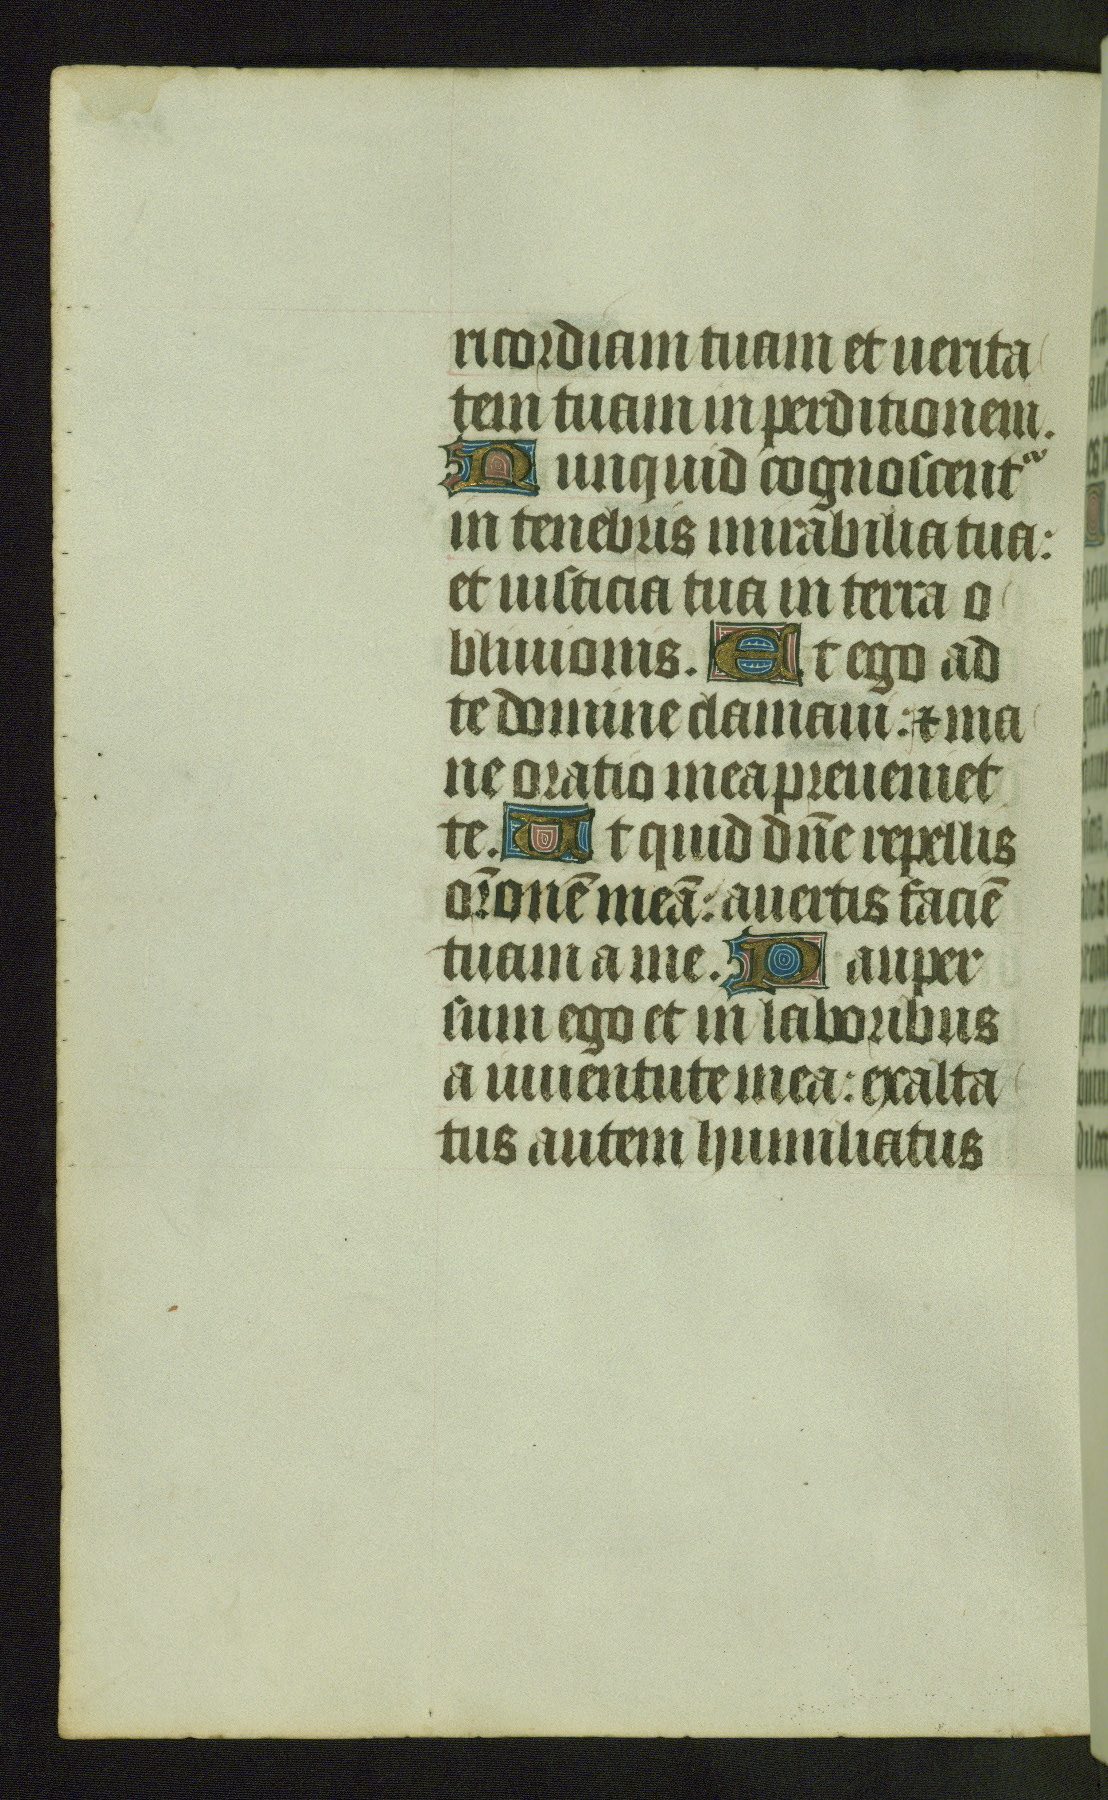 ricordiam tuam et uerita
tem tuam in perditionem.
Nunquid cognoscentᷣ
in tenebris mirabilia tua:
et iusticia tua in terra o
bliuionis. Et ego ad
te domine clamaui: ⁊ ma
ne oratio mea preueniet
te. Ut quid dn̄e repellis
or̄onē meā: auertis faciē
tuam a me. Pauper
sum ego et in laboribus
a iuuentute mea: exalta
tus autem humiliatus